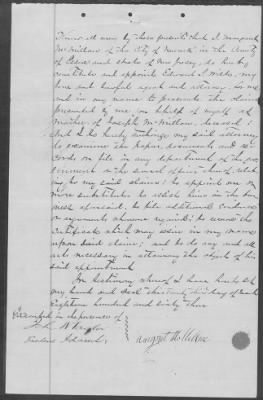 Know all men by these presents that I Margaret
McMillan of the City of Newark in the County
of Essex and state of New Jersey, do hereby
constitute and appoint Edward J. Wilds, my
true and lawful agent and attorney for me
and in my name to prosecute the claim
presented by me, on behalf of myself as
mother of Joseph McMillan, deceased.
And I do hereby authorize my said attorney
to examine the papers, documents and re-
cords on file in any department of the gov-
ernment or the several offices thereof, relat-
ing to my said claim; to appoint one or
more substitutes to assist him in the bus-
iness aforesaid, to file additional evidence
or arguments whenever required; to receive the
certificate which may issue in my name
upon said claim; and to do any and all
acts necessary in attaining the object of his
said appointment
In testimony whereof I have hereto set
my hand and seal this twenty third day of
Eighteen hundred and sixty three
Executed in the presence of